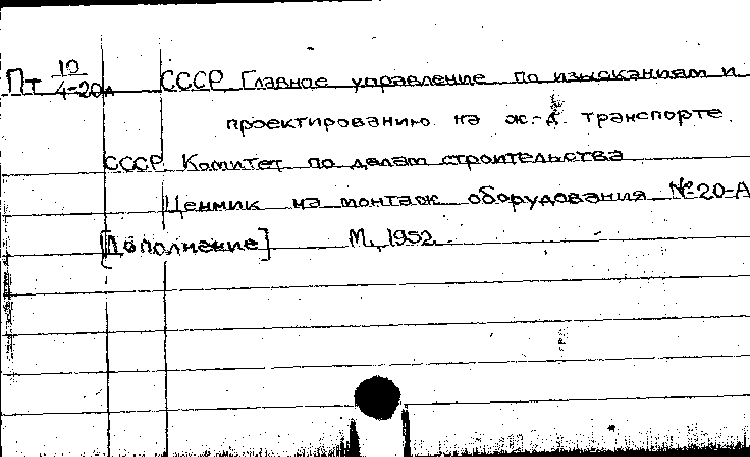 Пт 10/4-20А СССР Главное управление по изысканиям и
проектированию на ж.-д. транспорте.
СССР Комитет по делам строительства
Ценник на монтаж оборудования №20-А
[Дополнение] М., 1952.